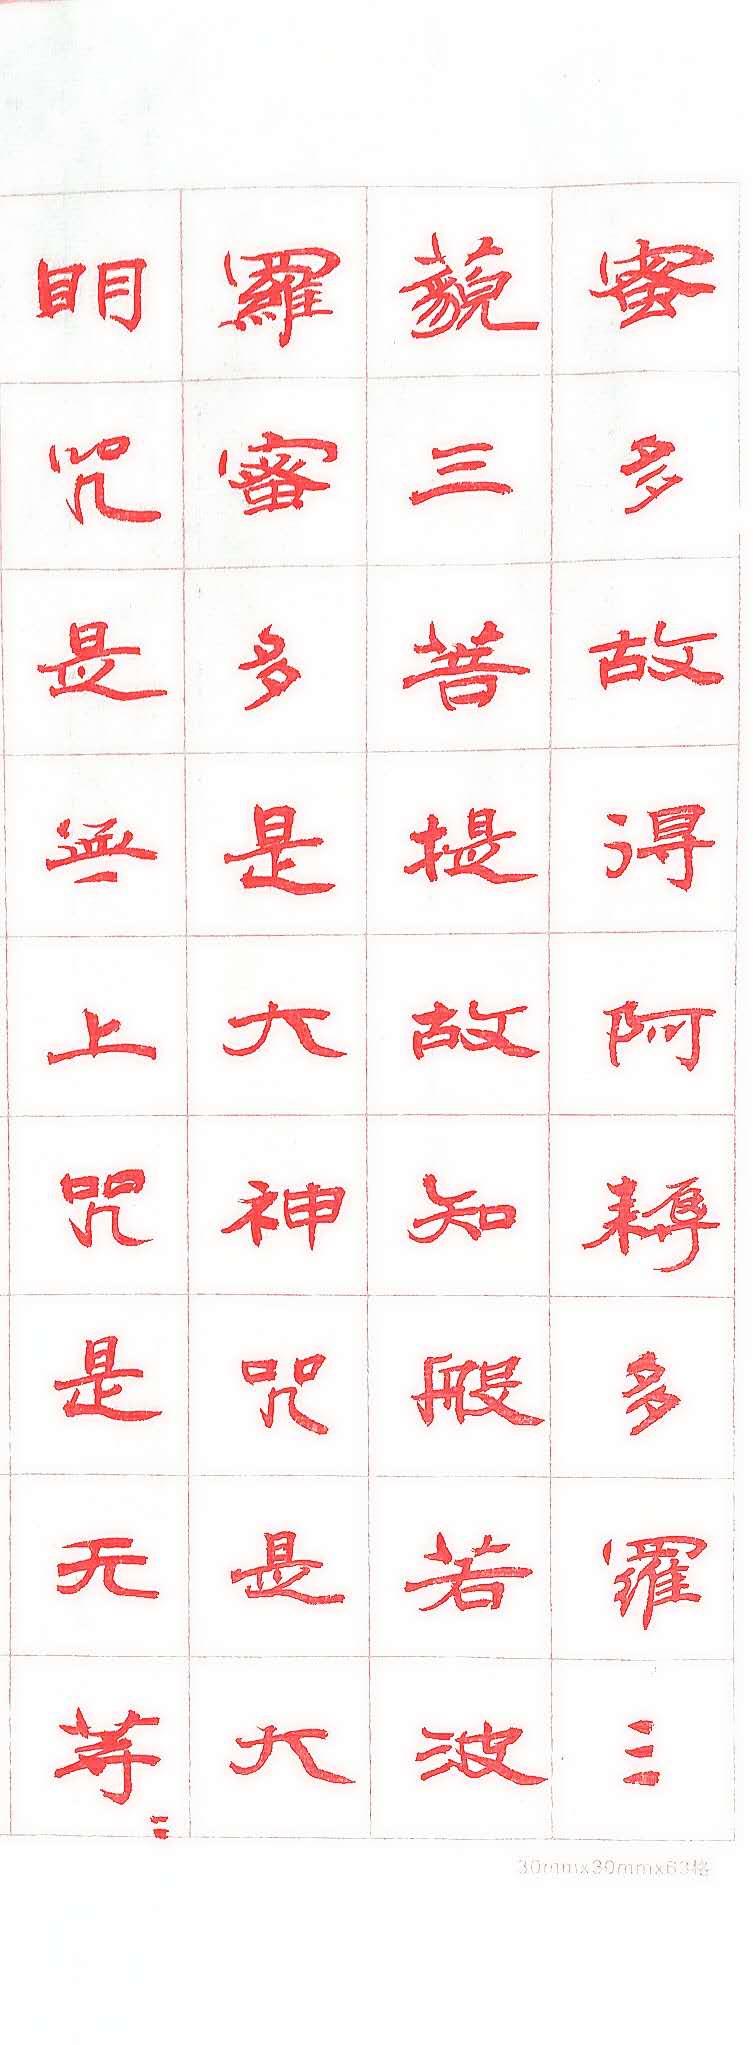 蜜多故得阿耨多羅三
藐三菩提故知般若波
羅蜜多是大神咒是大
明咒是無上咒是无等〻
30mmx30mmx63格